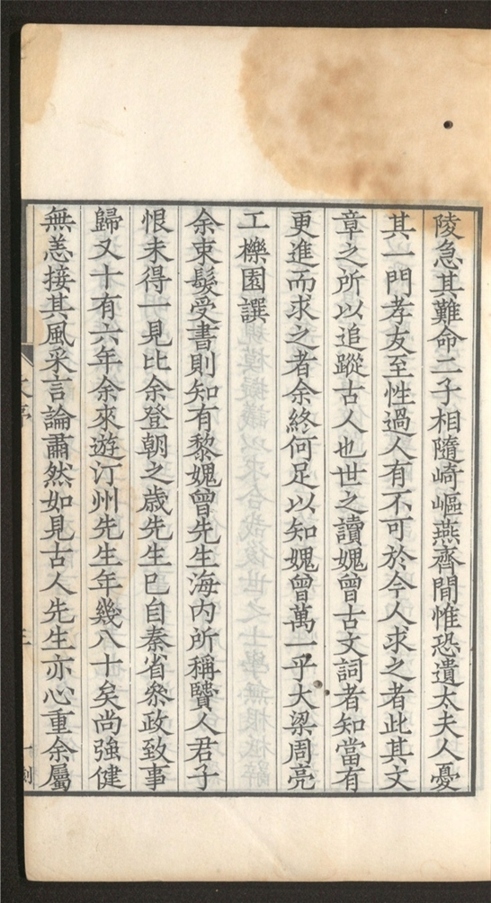 陵急其難命二子相隨崎嶇燕齊閒惟恐遺太夫人憂
其一門孝友至性過人有不可於今人求之者此其文
章之所以追蹤古人也世之讀媿曾古文詞者知當有
更進而求之者余終何足以知媿曾萬一乎大梁周亮
工櫟園譔
余束髮受書則知有黎媿曾先生海内所稱贒人君子
恨未得一見比余登朝之歳先生巳自秦省叅政致事
歸又十有六年余來遊汀州先生年幾八十矣尚強健
無恙接其風采言論肅然如見古人先生亦心重余屬